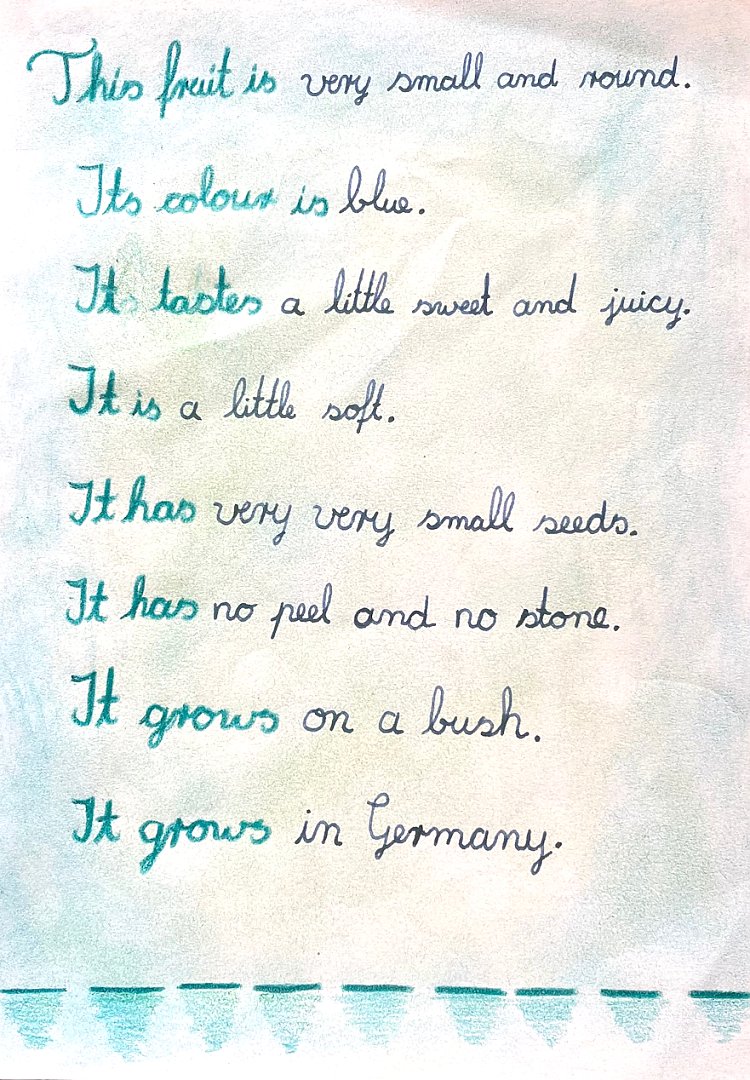 This fruit is very small and round.
Its colour is blue.
It tastes a little sweet and juicy.
It is a little soft.
It has very very small seeds.
It has no peel and no stone.
It grows on a bush.
It grows in Germany.